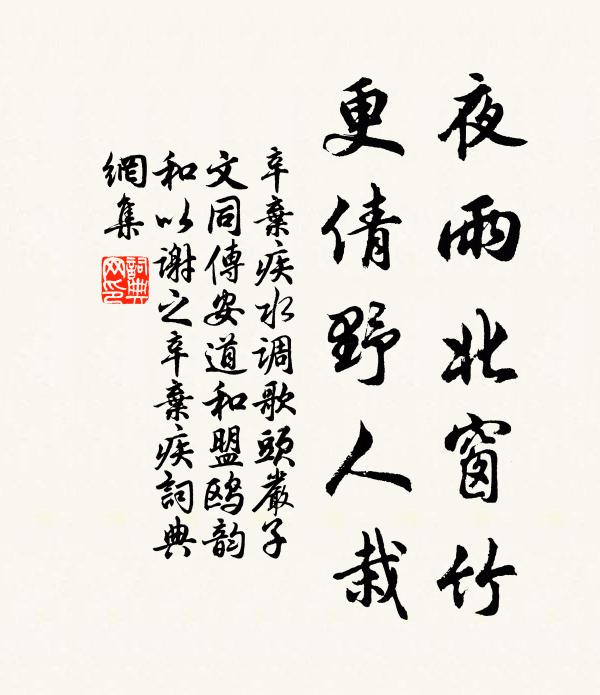 夜雨北窗竹
更倩野人栽
辛棄疾水调歌頭嚴子
文同傅安道和盟鸥韵
和以谢之辛棄疾詞典
網集
詞典
网印